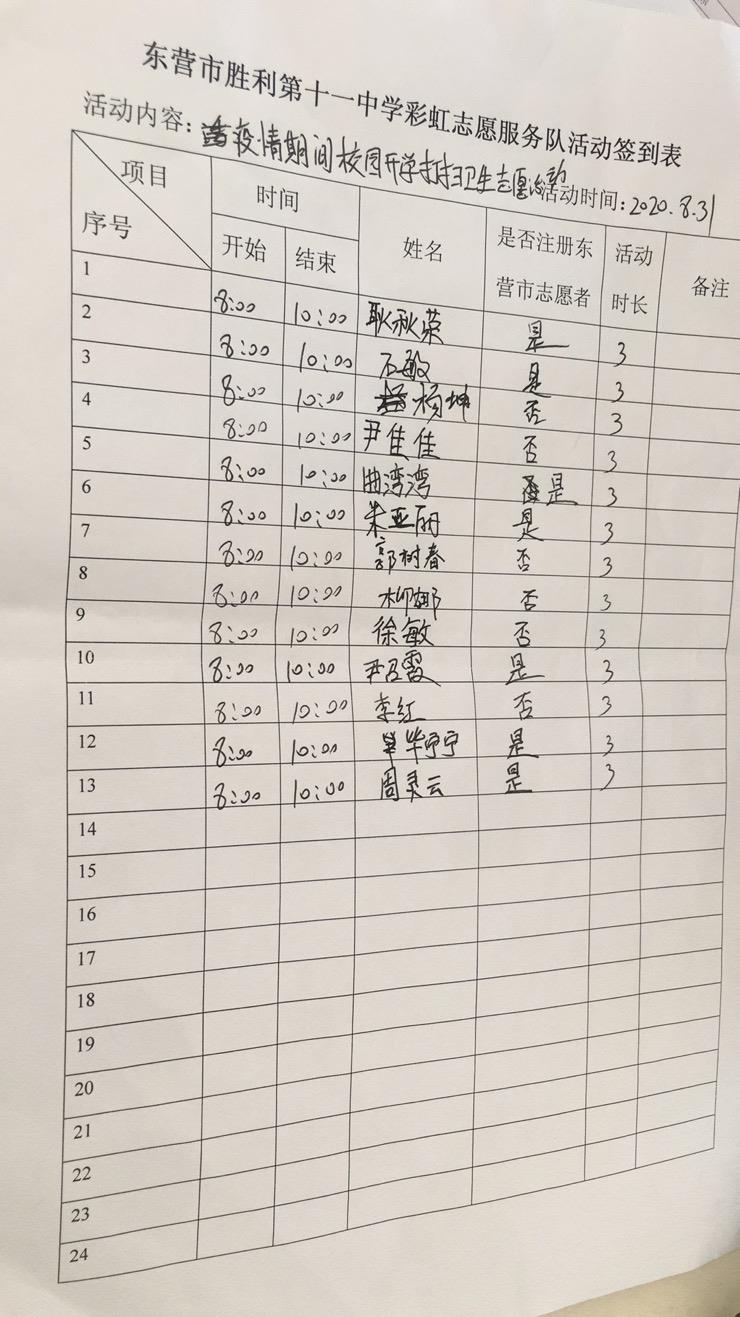 东营市胜利第十一中学彩虹志愿服务队活动签到表
活动内容：疫情期间校园开学打扫卫生志愿活动 活动时间：2020.8.31
项目 序号 时间 开始 结束 姓名 是否注册东营市志愿者 活动时长 备注
1 8:00 10:00 耿秋荣 是 3
2 8:00 10:00 石敏 是 3
3 8:00 10:00 杨坤 否 3
4 8:00 10:00 尹佳佳 否 3
5 8:00 10:00 曲湾湾 是 3
6 8:00 10:00 朱亚丽 是 3
7 8:00 10:00 郭树春 否 3
8 8:00 10:00 柳娜 否 3
9 8:00 10:00 徐敏 否 3
10 8:00 10:00 尹召霞 是 3
11 8:00 10:00 李红 否 3
12 8:00 10:00 毕宁宁 是 3
13 8:00 10:00 周灵云 是 3
14
15
16
17
18
19
20
21
22
23
24